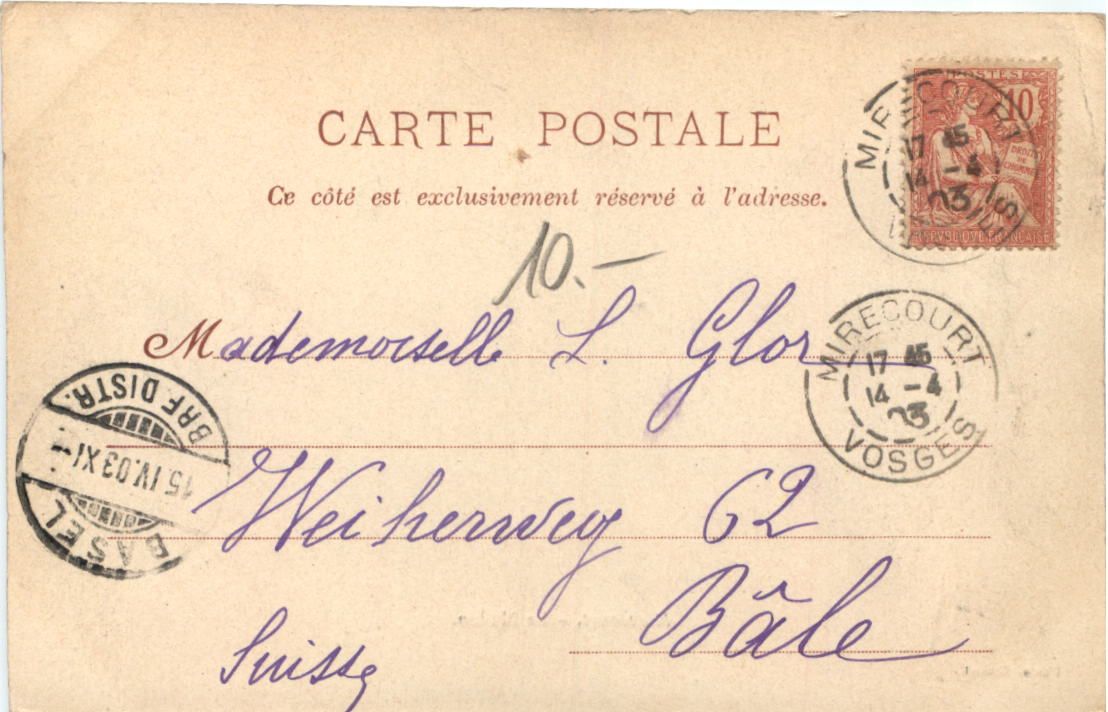 CARTE POSTALE
Ce côté est exclusivement réservé à l'adresse.
POSTES
10
DROITS
DE
L'HOMME
REPVBLIQVE FRANÇAISE
MIRECOURT
17 45
14 -4
03
10.-
Mademoiselle L. Glor
MIRECOURT
17 45
14 -4
03
VOSGES
BRF. DISTR.
15.IV.03 XI-
BASEL
Weiherweg 62
Bâle
Suisse